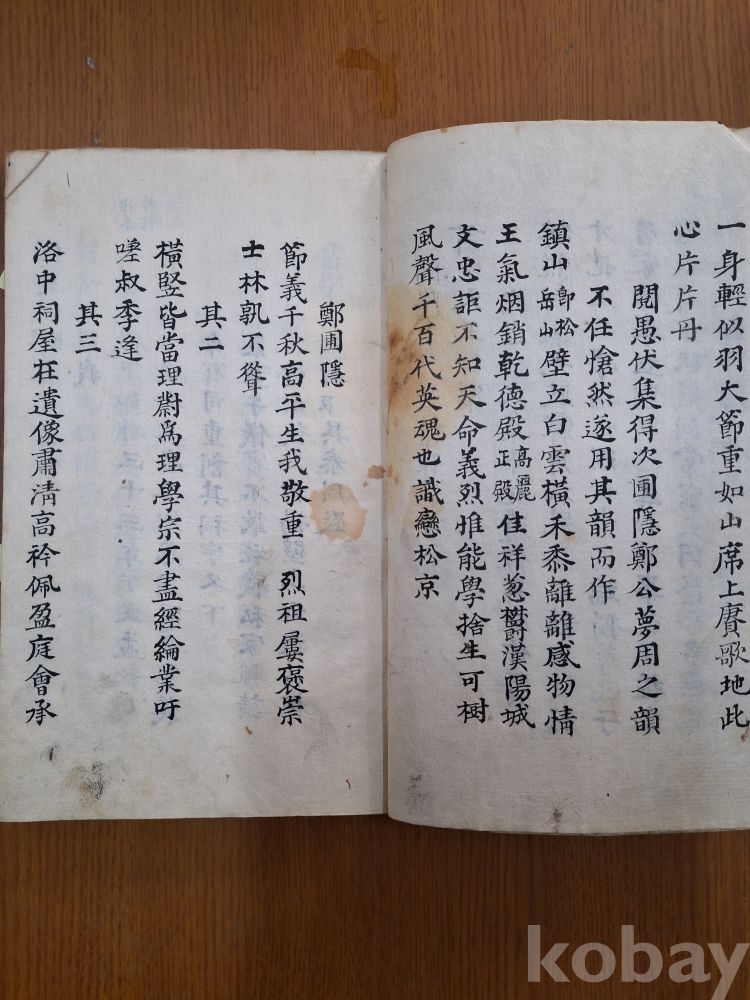 一身輕似羽大節重如山席上賡歌地此
心片片丹
閱愚伏集得次圃隱鄭公夢周之韻
不任愴然遂用其韻而作
鎮山卽松岳山壁立白雲橫禾黍離離感物情
王氣烟銷乾德殿高麗正殿佳祥葱欝漢陽城
文忠詎不知天命義烈惟能學捨生可樹
風聲千百代英魂也識戀松京
鄭圃隱
節義千秋高平生我敬重 烈祖屢褒崇
士林孰不聳
其二
橫竪皆當理蔚爲理學宗不盡經綸業吁
嗟叔季逢
其三
洛中祠屋在遺像肅淸高衿佩盈庭會承
kobay